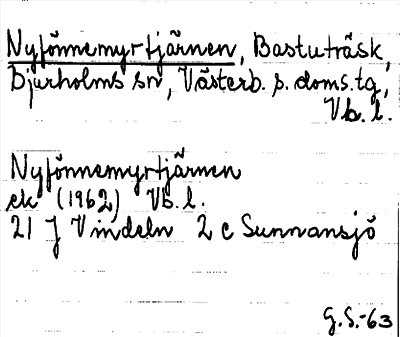 Nyfönnemyrtjärnen, Bastuträsk,
Bjurholms sn, Västerb. s. doms.tg,
Vb. l.
Nyfönnemyrtjärnen
ek (1962) Vb. l.
21 J Vindeln 2 c Sunnansjö
G.S.-63